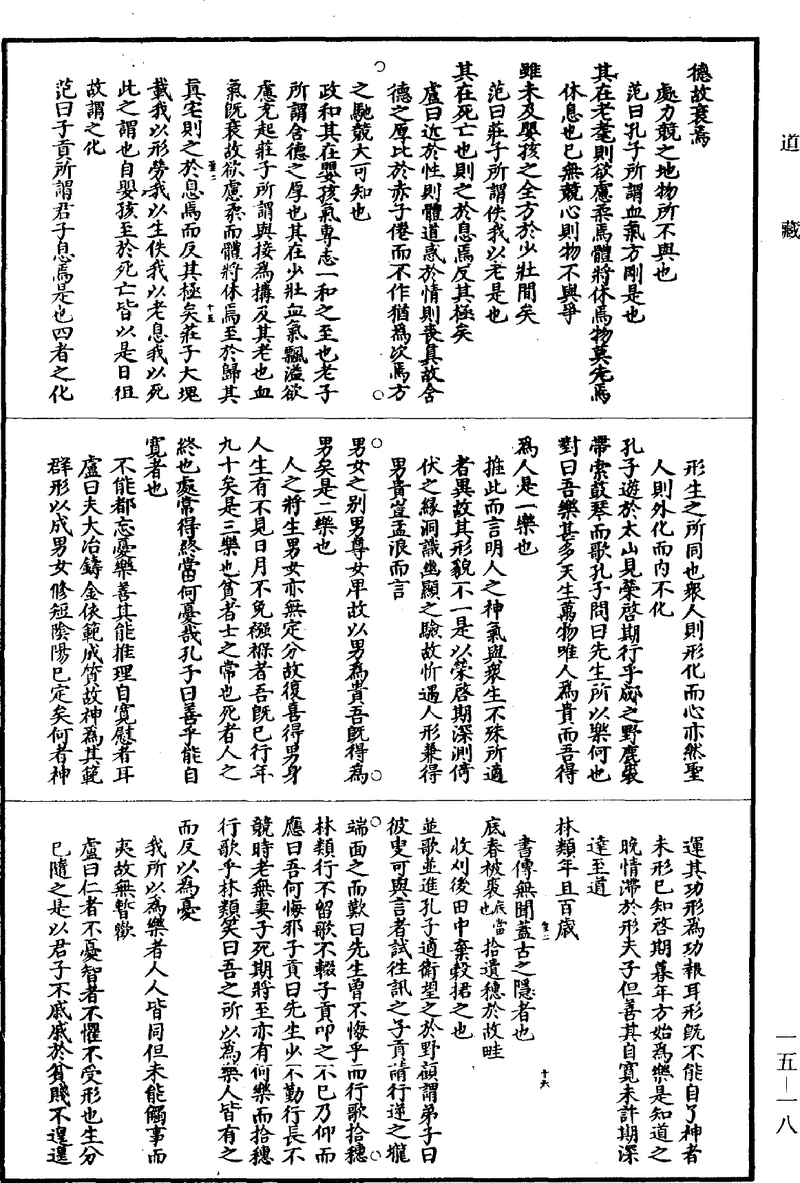 道藏
德故衰焉
處力競之地物所不與也
范曰孔子所謂血氣方剛是也
其在老耄則欲慮柔焉體將休焉物莫先焉
休息也已無競心則物不與爭
雖未及嬰孩之全方於少壯間矣
范曰莊子所謂佚我以老是也
其在死亡也則之於息焉反其極矣
盧曰近於性則體道惑於情則喪真故含
德之厚比於赤子倦而不作猶為次焉方
之馳競大可知也
政和其在嬰孩氣專志一和之至也老子
所謂含德之厚也其在少壯血氣飄溢欲
慮充起莊子所謂與接為搆及其老也血
氣既衰故欲慮柔而體將休焉至於歸其
真宅則之於息焉而反其極矣莊子大塊
載我以形勞我以生佚我以老息我以死
此之謂也自嬰孩至於死亡皆以是日徂
故謂之化
范曰子貢所謂君子息焉是也四者之化
形生之所同也衆人則形化而心亦然聖
人則外化而內不化
孔子遊於太山見榮啓期行乎郕之野鹿裘
帶索鼓琴而歌孔子問曰先生所以樂何也
對曰吾樂甚多天生萬物唯人為貴而吾得
為人是一樂也
推此而言明人之神氣與衆生不殊所適
者異故其形貌不一是以榮啓期深測倚
伏之緣洞識幽顯之驗故忻遇人形兼得
男貴豈孟浪而言
男女之別男尊女卑故以男為貴吾既得為
男矣是二樂也
人之將生男女亦無定分故復喜得男身
人生有不見日月不免襁褓者吾既已行年
九十矣是三樂也貧者士之常也死者人之
終也處常得終當何憂哉孔子曰善乎能自
寬者也
不能都忘憂樂善其能推理自寬慰者耳
盧曰夫大冶鑄金依範成質故神為其範
群形以成男女修短陰陽已定矣何者神
運其功形為功報耳形既不能自了神者
未形已知啓期暮年方始為樂是知道之
晚情滯於形夫子但善其自寬未許期深
達至道
林類年且百歲
書傳無聞蓋古之隱者也
底春被裘底當也拾遺穗於故畦
收刈後田中棄穀捃之也
並歌並進孔子適衛望之於野顧謂弟子曰
彼叟可與言者試往訊之子貢請行逆之壠
端面之而歎曰先生曾不悔乎而行歌拾穗
林類行不留歌不輟子貢叩之不已乃仰而
應曰吾何悔邪子貢曰先生少不勤行長不
競時老無妻子死期將至亦有何樂而拾穗
行歌乎林類笑曰吾之所以為樂人皆有之
而反以為憂
我所以為樂者人人皆同但未能觸事而
夷故無暫歡
盧曰仁者不憂智者不懼不受形也生分
已隨之是以君子不戚戚於貧賤不遑遑
一五—一八